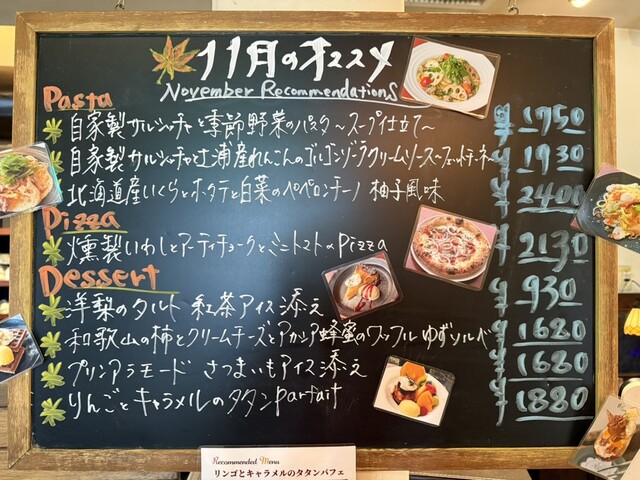 11月のオススメ
November Recommendations
Pasta
自家製サルシッチャと季節野菜のパスタ ～スープ仕立て～ ¥1750
自家製サルシッチャと土浦産れんこんのゴルゴンゾーラクリームソースフェットチーネ ¥1930
北海道産いくらとホタテと白菜のペペロンチーノ 柚子風味 ¥2400
Pizza
燻製いわしとアーティチョークとミニトマトのpizza ¥2130
Dessert
洋梨のタルト 紅茶アイス添え ¥930
和歌山の柿とクリームチーズとアカシア蜂蜜のワッフル ゆずソルベ ¥1680
プリンアラモード さつまいもアイス添え ¥1680
りんごとキャラメルのタタンparfait ¥1880
Recommended Menu
リンゴとキャラメルのタタンパフェ